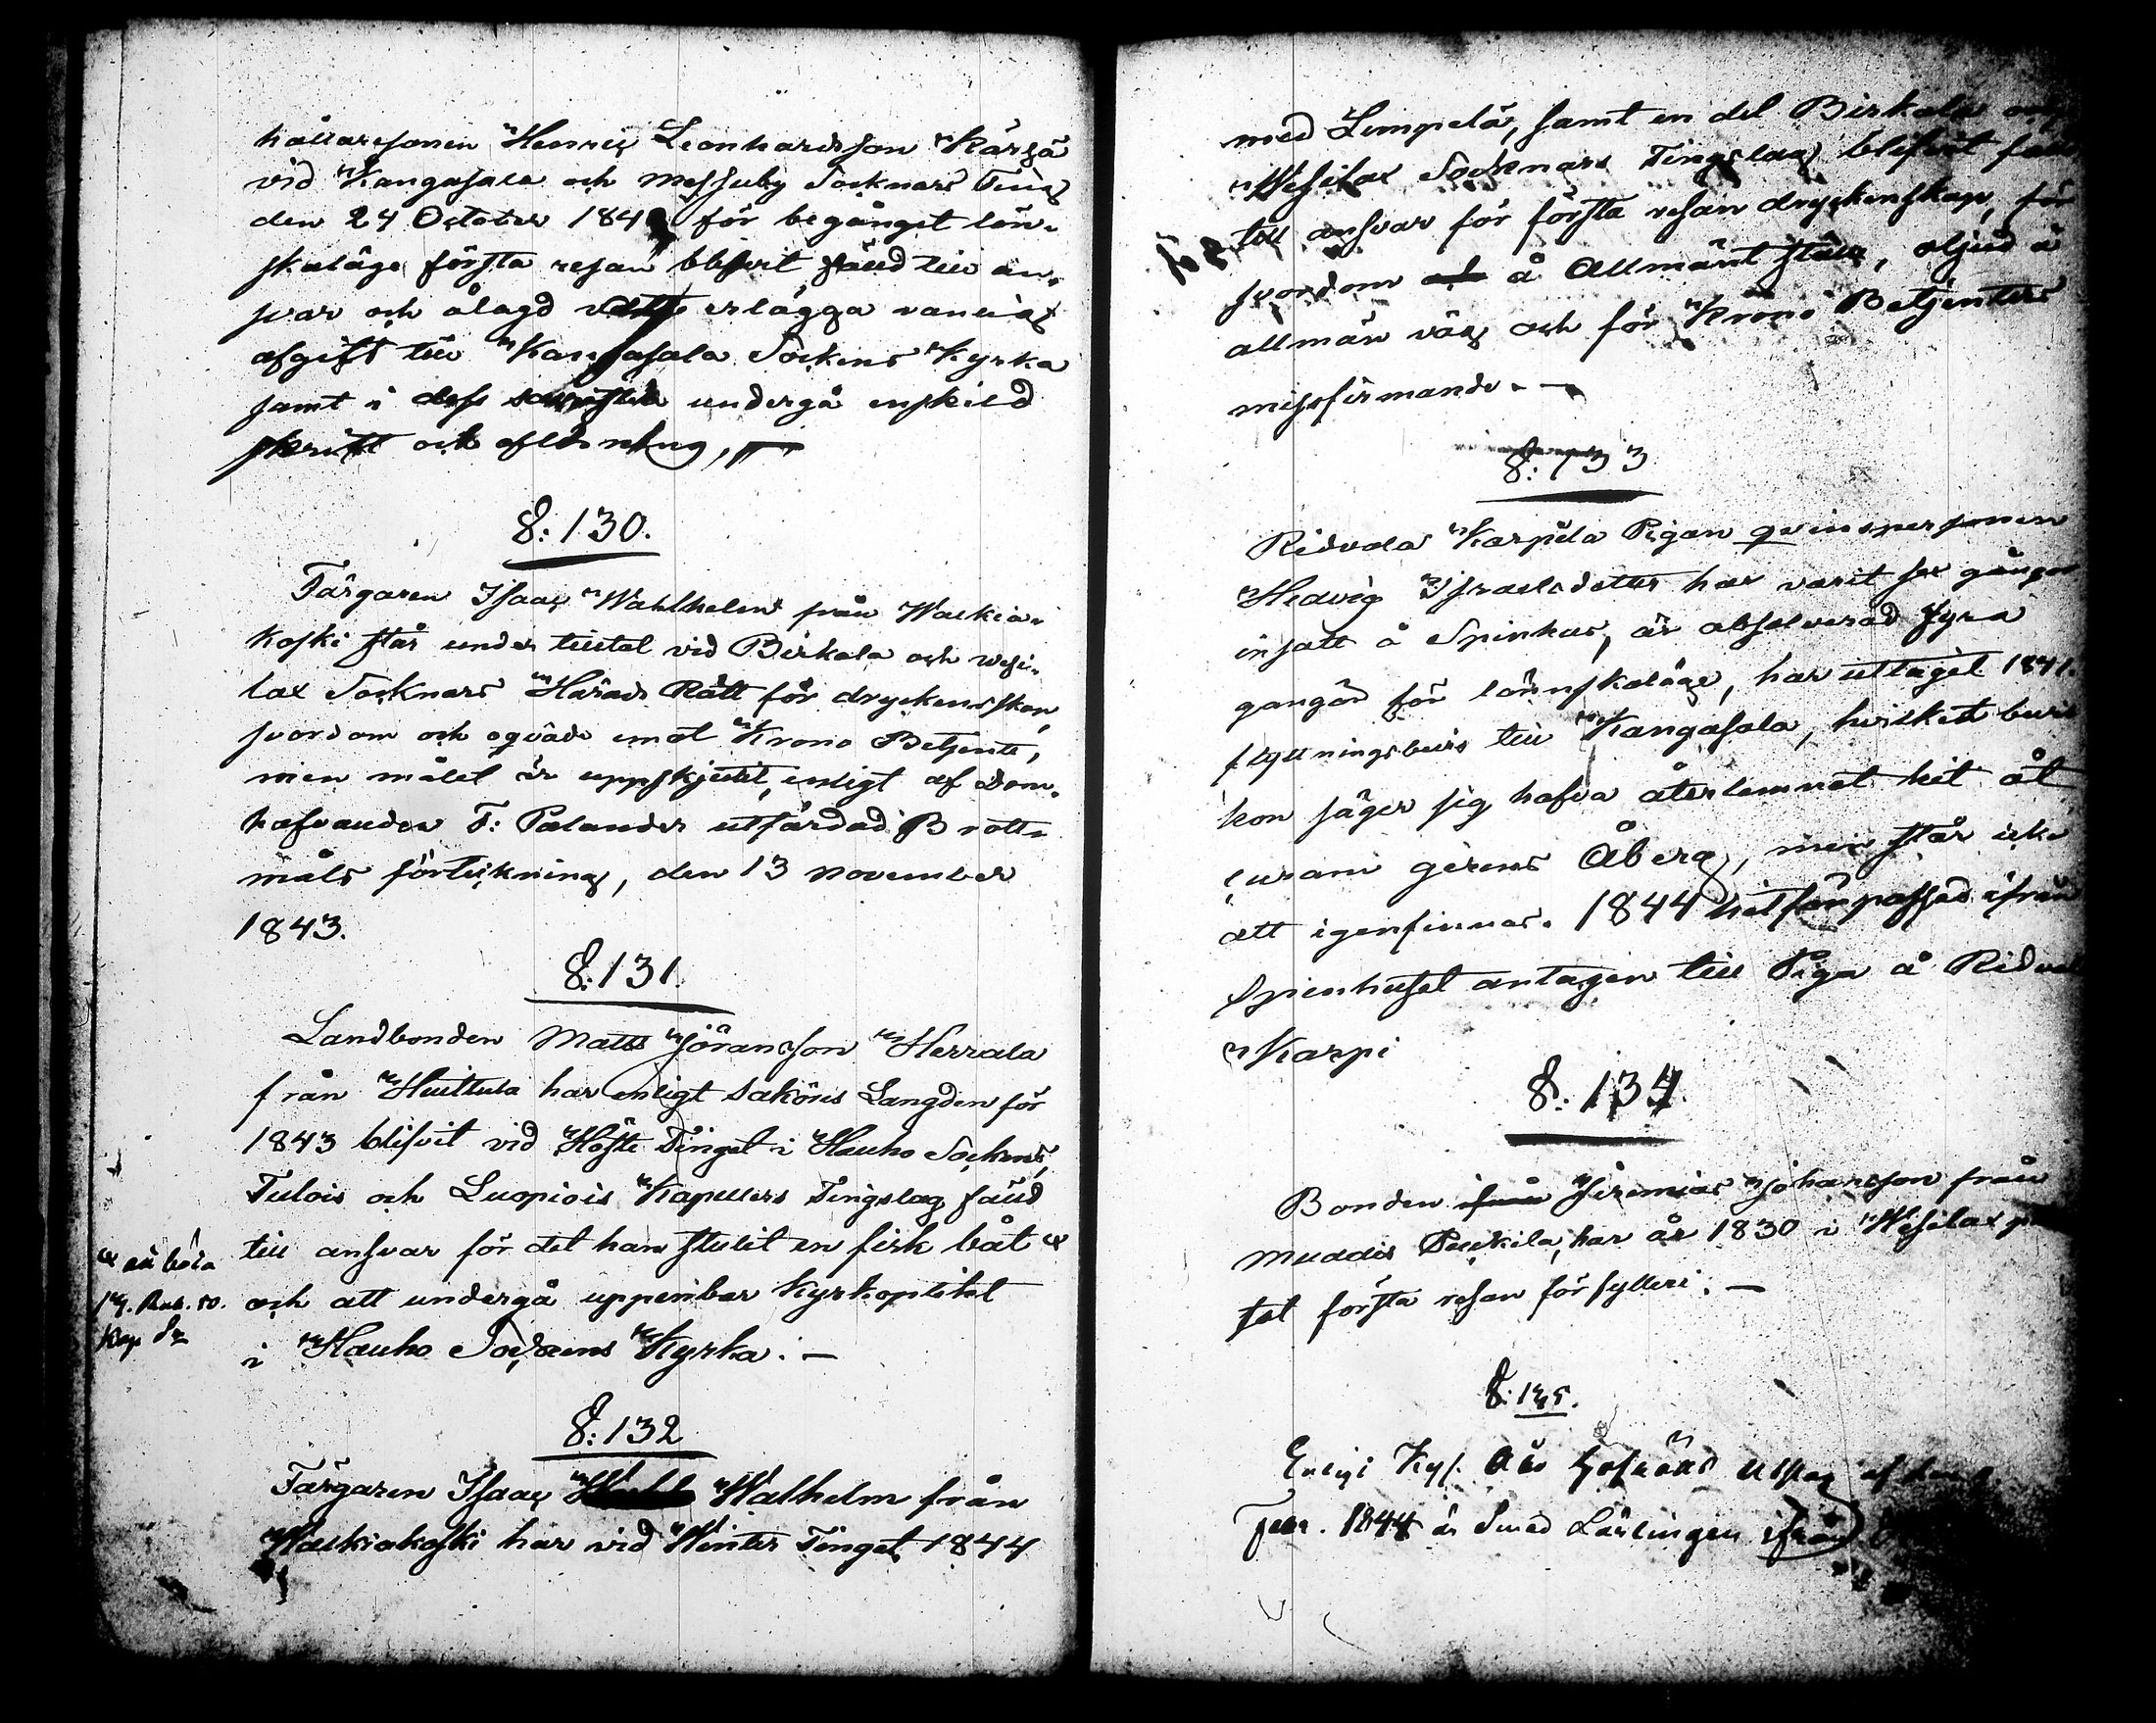 hållaresonen Henric Leonhardsson Kärgä
vid Kangasala och Messuby Socknars Ting
den 24 October 184 för begånget lön-
skaläge första resan blifvit fäld till an-
svar och ålagd erlägga vanlig
afgift till Kangasala Sockens Kyrka
samt i dess undergå enskild
skrift och aflösning,
§: 130.
Färgaren Isaac Wahlhelm från Walkia-
koski står under tilltal vid Birkala och Wesi-
lax Socknars Härads Rätt för dryckenskap,
svordom och oqväde emot Krono Betjente,
men målet är uppskjutit, enligt af Dom-
hafvanden F: Palander utfärdad Brott-
måls förteckning, den 13 November
1843.
§: 131.
Landbonden Matts Jöransson Herrala
från Huittula har enligt Saköres Längden för
1843 blifvit vid Höste Tinget i Hauho Sockens,
Tulois och Luopiois Kapellers Tingslag fäld
till ansvar för det han stulit en fisk båt
att böta
och att undergå uppenbar Kyrkoplikt
14. Rub. 50.
Kop Sr
i Hauho Sockens Kyrka. —
§: 132
Färgaren Isaac Walhelm från
Walkiakoski har vid Winter Tinget 1844
med Lempelä, samt en del Birkala och
Wesilax Socknars Tingslag blifvit fäld
till ansvar för första resan dryckenskap, för
svordom å Allmänt ställe, oljud å
allmän väg och för Krono Betjentes
missfirmande. —
§: 133
Ridvala Karpila Pigan qvinspersonen
Hedvig Israelsdotter har varit sex gånger
insatt å Spinhus, är absolverad fyra
gångor för lönnskaläge, har uttagit 1841.
flyttningsbevis till Kangasala, hvilket bevis
hon säger sig hafva återlemnat hit åt
curam gerens Åberg, men står icke
att igenfinnas. 1844 hitförpassad ifrån
Spinhuset antagen till Piga å Ridvala
Karpi
§: 134.
Bonden ifrån Jeremias Johansson från
Muddis Peukila, har år 1830 i Wesilax
tat första resan för fylleri. —
§: 135.
Enligt Kejs. Åbo Hofrätts Utslag af den
Febr. 1844 är Smed Lärlingen ifrån